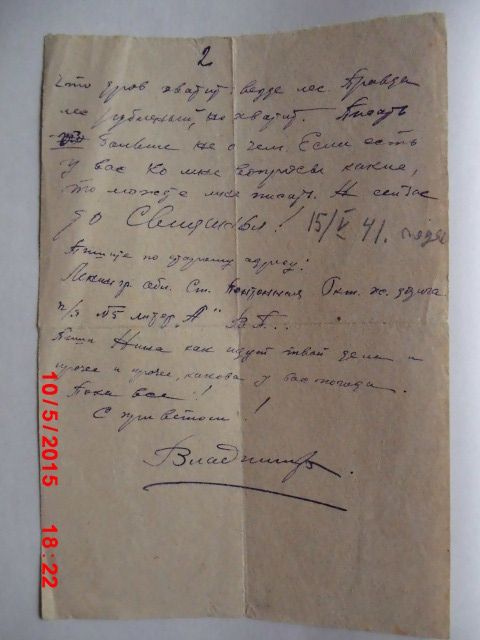 2
Что дров хватит: везде лес. Правда
лес рубленный, но хватит. Писать
больше не о чем. Если есть
у вас ко мне вопросы какие,
то можете мне писать. А сейчас
до Свидания! 15/V 41.
Пишите по старому адресу:
Ленингр. обл. Ст. Понтонная Окт. ж. дорога
п/я №5 литер "А" В.П..
Пиши Нина как идут твои дела и
прочее и прочее, какова у вас погода.
Пока все!
С приветом!
Владимир.
10/5/2015 18:22